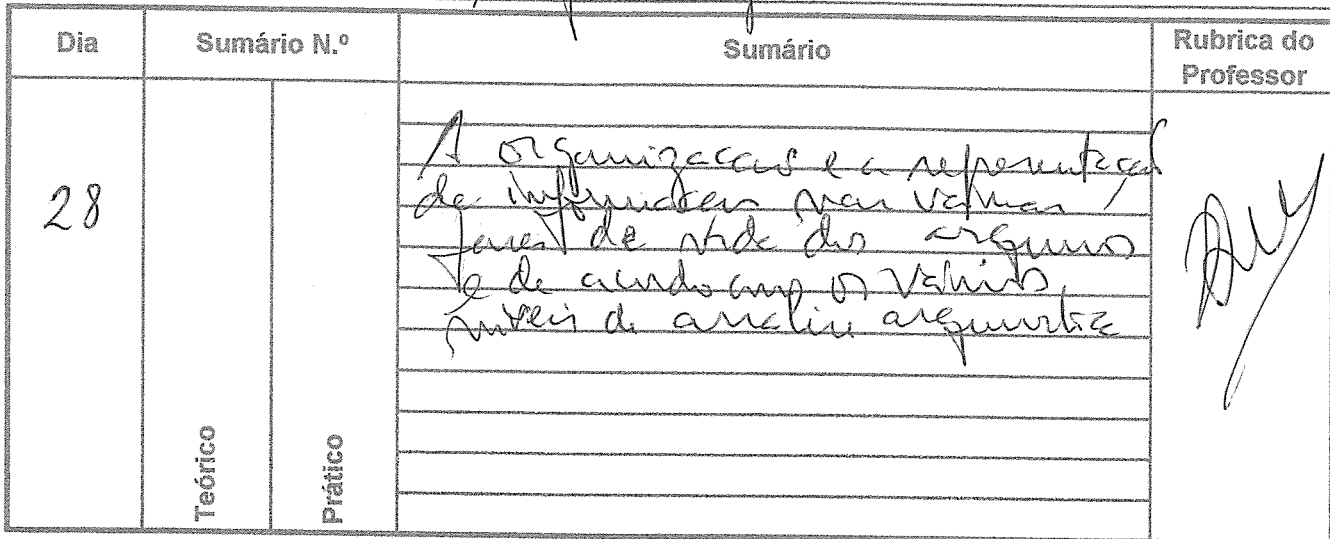 Dia Sumário N.º Sumário Rubrica do Professor
28
Teórico
Prático
A organização e a representação
da informação nas várias
fases de vida dos arquivos
e de acordo com os vários
níveis de análise arquivística